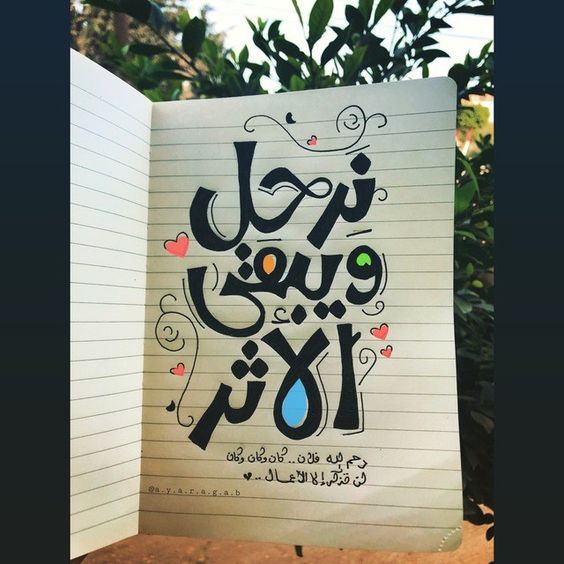 نَرحل
وَيبقى
الأثر
رحم الله فلان .. كان وكان وكان
لن تذكر إلا الأعمال .. ♥
@a.y.a.r.a.g.a.b